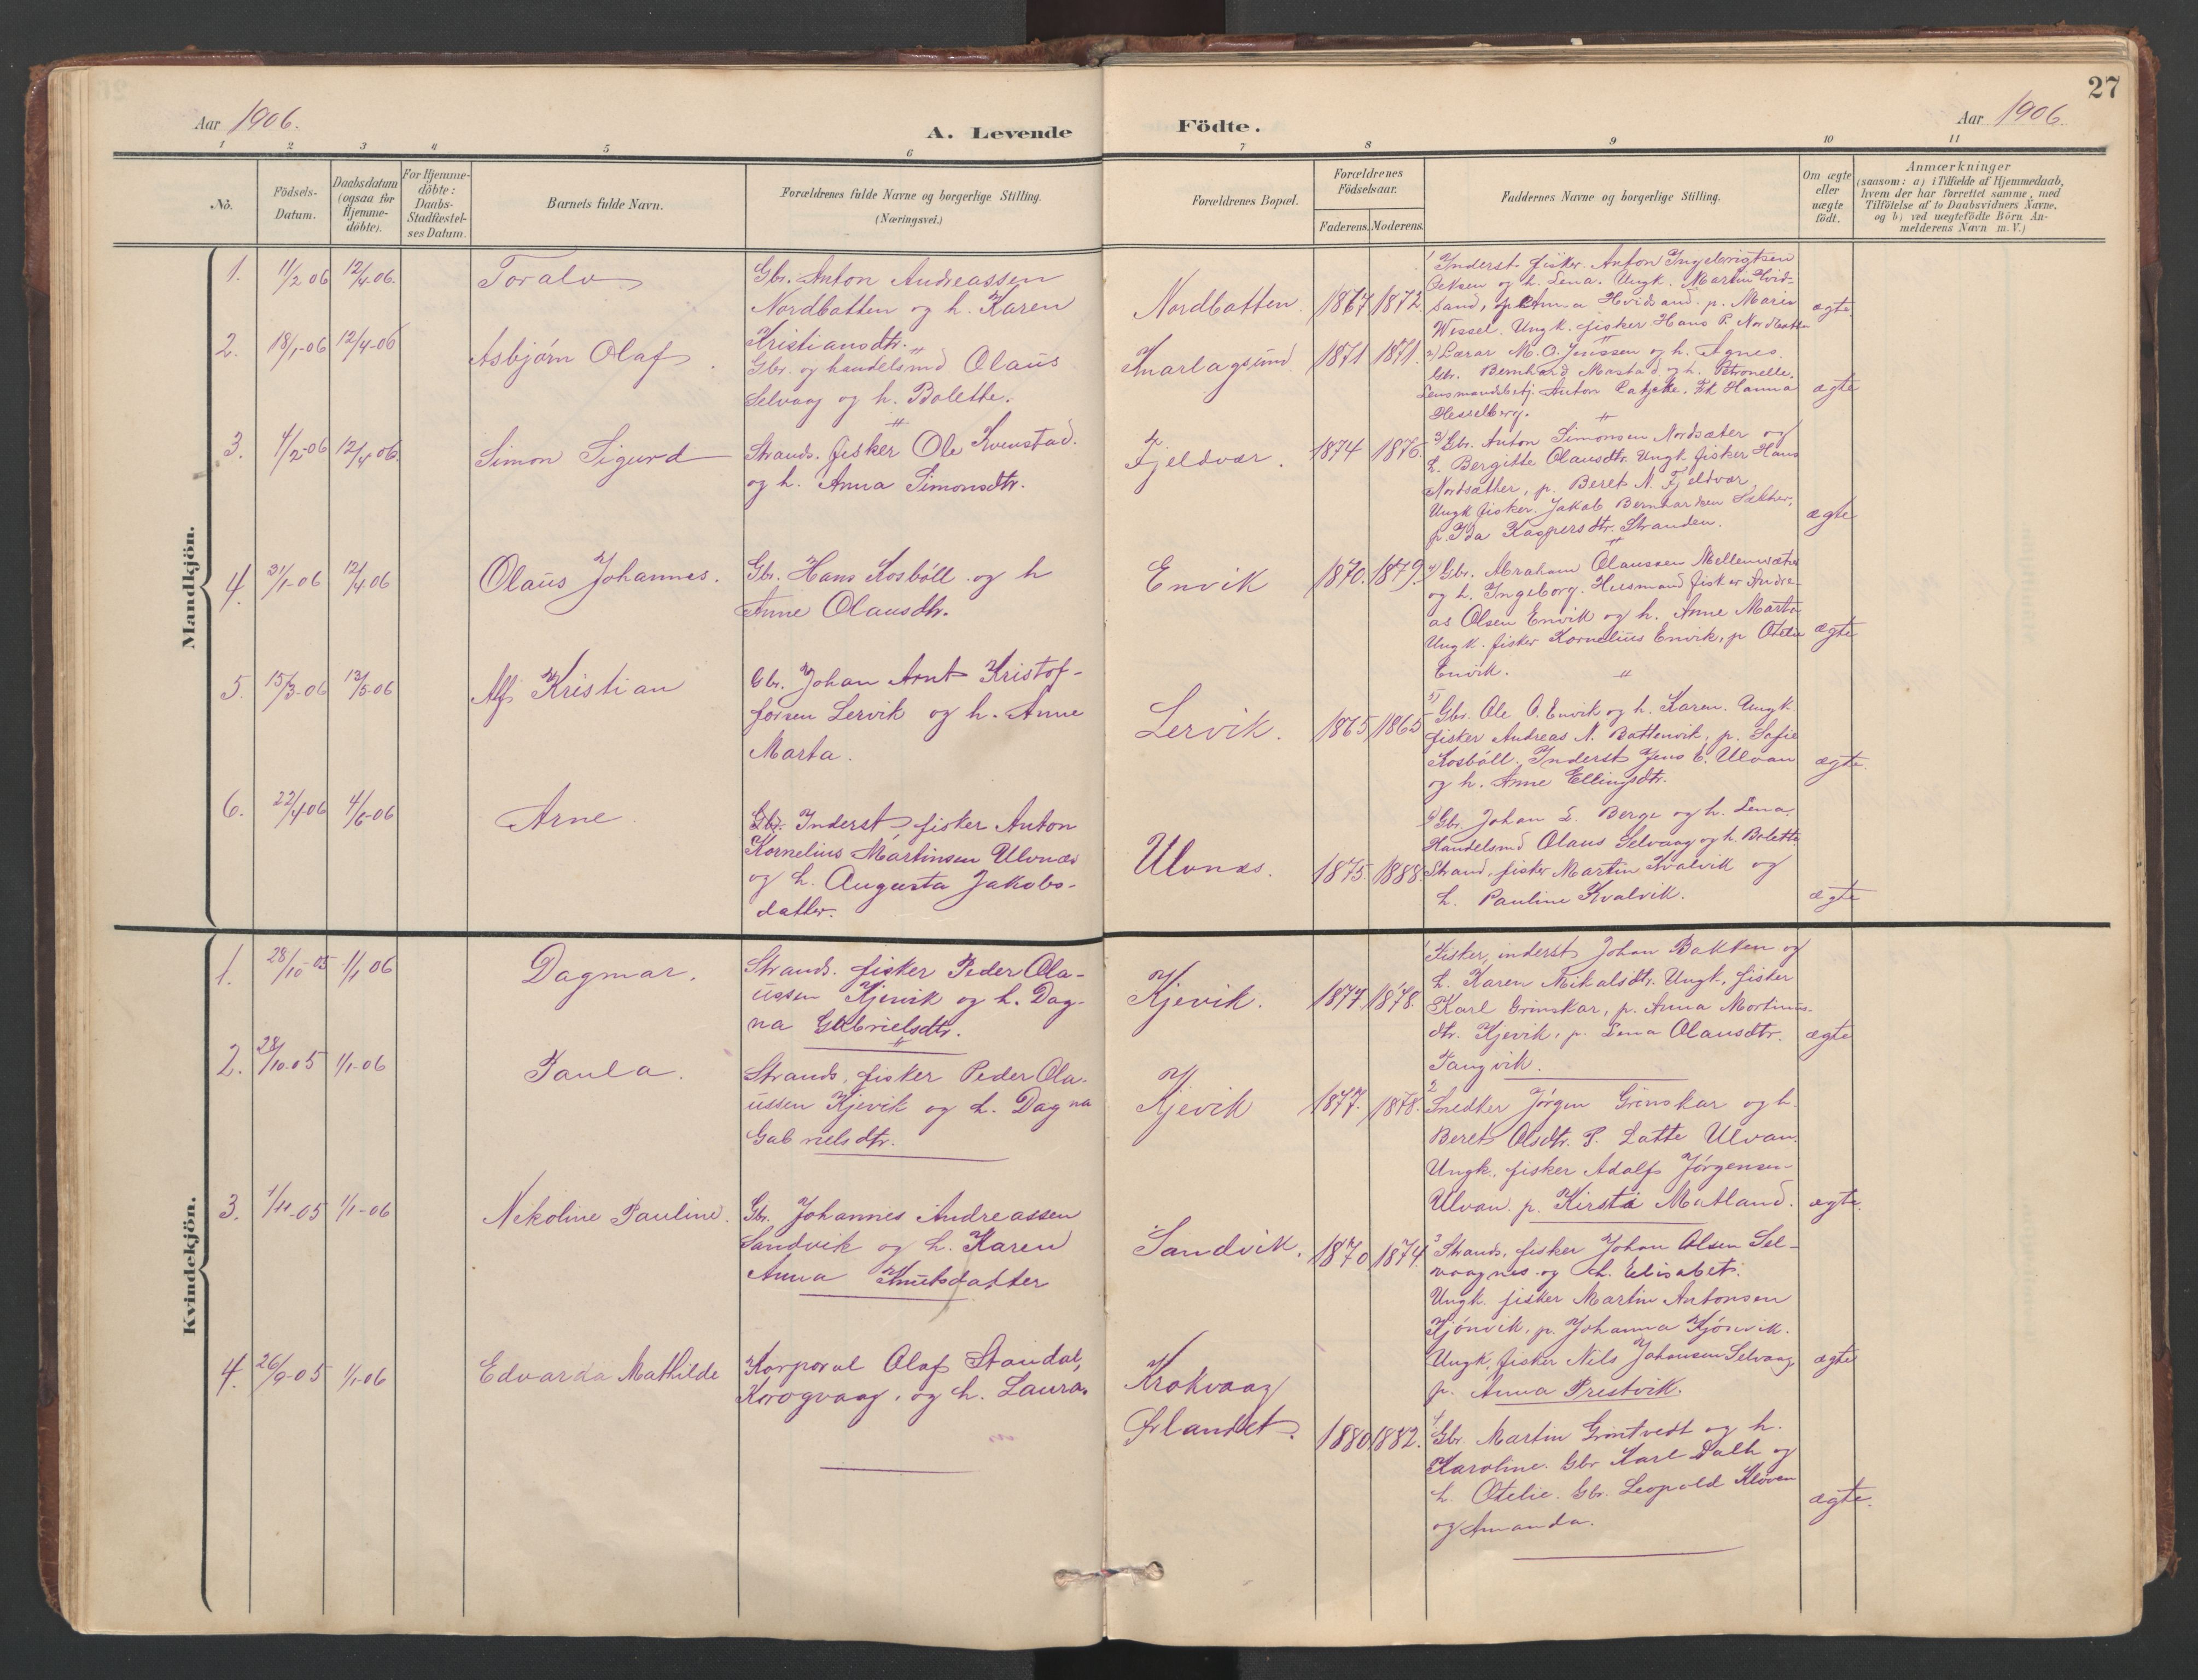 27
Aar 1906.
A. Levende
Födte.
Aar 1906.
1 2 3 4 5 6 7 8 9 10 11
No.
Födsels-
Datum.
Daabsdatum
(ogsaa for
Hjemme-
döbte).
For Hjemme-
döbte:
Daabs-
Stadfæstel-
ses Datum.
Barnets fulde Navn.
Forældrenes fulde Navne og borgerlige Stilling.
(Næringsvei.)
Forældrenes Bopæl.
Forældrenes
Födselsaar.
Faderens. Moderens.
Faddernes Navne og borgerlige Stilling.
Om ægte
eller
uægte
födt.
Anmærkninger
(saasom: a) i Tilfælde af Hjemmedaab,
hvem der har forrettet samme, med
Tilföielse af to Daabsvidners Navne,
og b) ved uægtefödte Börn An-
melderens Navn m. V.)
Mandkjön.
1. 11/2 06 12/4 06. Toralv
Gbr. Anton Andreassen
Nordbotten og h. Karen
Kristiansdtr.
Nordbotten. 1867 1872.
1 Inderst fisker Anton Ingebrigtsen
og h. Lena. Ungk. Martin Hvid-
sand, p. Anna Hvidsand. p. Marie
Wessel. Ungk. fisker Hans P. Nordbotten
ægte
2. 18/1-06 12/4-06 Asbjørn Olaf.
Gbr. og handelsmd Olaus
Selvaag og h. Bolette.
Knarlagsund 1871 1871.
2) Lærar M. O. Jenssen og h. Agnes.
Gbr. Bernhard Mastad og h. Petronelle.
Lensmandsbetj. Anton . Frk Hanna
Hesselberg.
ægte
3. 4/2-06 12/4-06. Simon Sigurd
Strands. fisker Ole Kvenstad.
og h. Anna Simonsdtr.
Fjeldvær. 1874 1876.
3) Gbr. Anton Simonsen Nordsæter og
h. Bergitte Olausdtr. Ungk. fisker Hans
Nordsæther, p. Beret N. Fjeldvær,
Ungk fisker. Jakob Bernhardsen Sæther,
p. Ida Kaspersdtr. Stranden.
ægte
4. 31/1-06 12/4 06 Olaus Johannes.
Gbr. Hans Kosbøll og h
Anne Olausdtr.
Envik 1870. 1879.
4) Gbr. Abraham Olaussen Mellemsæter
og h. Ingeborg. Husmand fisker Andre-
as Olsen Envik og h. Anne Marta
Ungk. fisker Kornelius Envik, p Otelie
Envik.
ægte
5. 15/3-06 13/5-06 Alf Kristian
Gbr. Johan Arnt Kristof-
fersen Lervik og h. Anne
Marta.
Lervik. 1865 1865
5) Gbr. Ole O. Envik og h. Karen. Ungk.
fisker Andreas N. Battenvik, p. Sofie
Kosbøll. Inderst Jens E. Ulvan
og h. Anne Ellingsdtr.
ægte.
6. 22/4-06 4/6-06 Arne
Gbr. Inderst fisker Anton
Kornelius Martinsen Ulvnæs
og h. Augusta Jakobs-
datter.
Ulvnæs. 1875 1888.
6) Gbr. Johan L. Berge og h. Lena.
Handelsmd Olaus Selvaag og h. Bolette
Strand, fisker Martin Kvalvik og
h. Pauline Kvalvik.
ægte
Kvindekjön.
1. 28/10-05 1/1 06 Dagmar.
Strands. fisker Peder Ola-
ussen Kjevik og h. Dag-
na Gabrielsdtr.
Kjevik. 1877 1878.
1 Fisker, inderst Johan Bakken og
h. Karen Mikalsdtr. Ungk. fisker
Karl Grinskar, p. Anna Martinus-
dtr. Kjevik, p. Lena Olausdtr.
Tangvik.
ægte
2. 28/10-05 1/1-06 Paula.
Strands, fisker Peder Ola-
ussen Kjevik og h. Dagna
Gabrielsdtr.
Kjevik 1877. 1878.
2 Snedker Jørgen Grinskar og h.
Beret Olsdtr. P. Lotte Ulvan.
Ungk. fisker Adolf Jørgensen
Ulvan. p. Kirsti Matland.
ægte.
3. 1/11-05 1/1-06 Nekoline Pauline.
Gbr. Johannes Andreassen
Sandvik og h. Karen
Anna Knutsdatter
Sandvik. 1870 1874.
3 Strands. fisker Johan Olsen Sel-
vaagnes og h. Elisabet.
Ungk. fisker Martin Antonsen
Kjønvik, p. Johanna Kjønvik.
Ungk. fisker Nils Johansen Selvaag
p. Anna Prestvik.
ægte
4. 26/9-05 1/1-06 Edvarda Mathilde
Korporal Olaf Standal,
Krogvaag, og h. Laura.
Krokvaag
Ørlandet. 1880 1882.
4 Gbr. Martin Grøntvedt og h.
Karoline. Gbr Karl Dalh og
h. Otelie. Gbr. Leopold Kløven
og Amanda.
ægte.